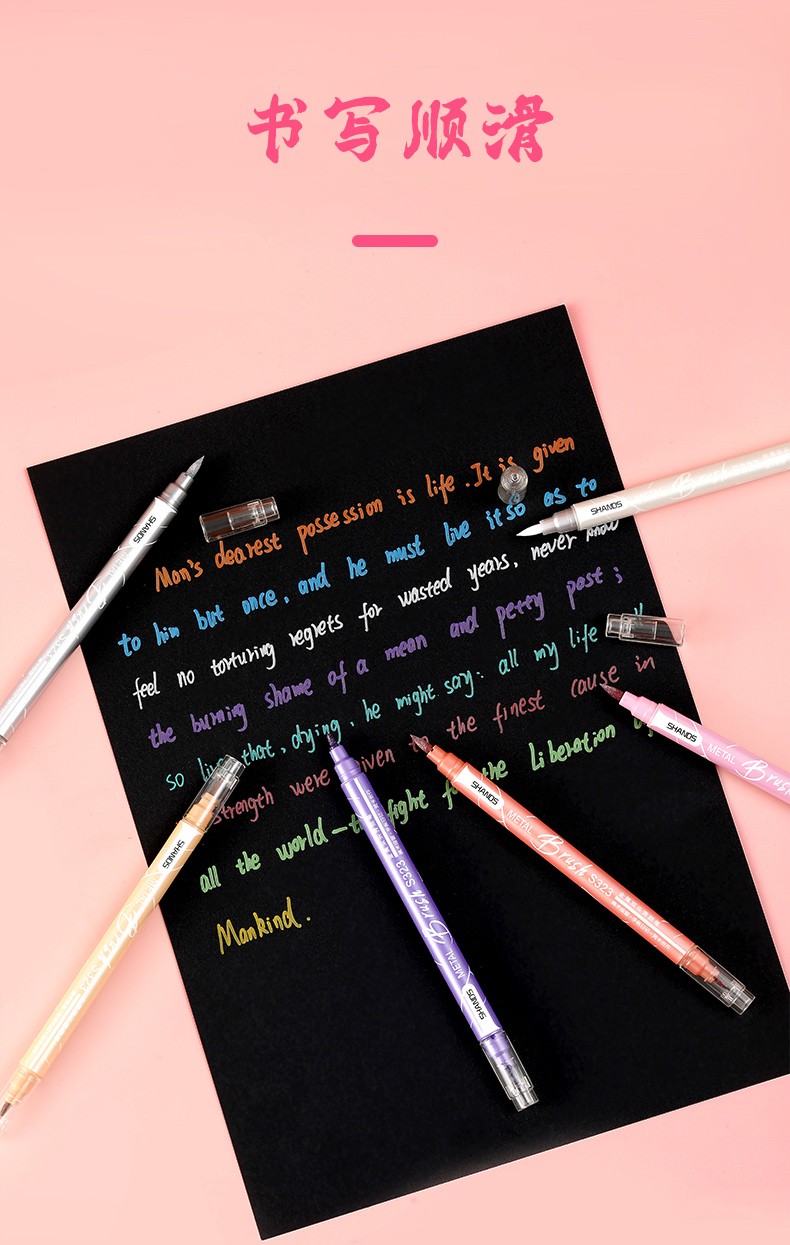 书写顺滑
Man's dearest possession is life. It is given
to him but once, and he must live it so as to
feel no torturing regrets for wasted years, never know
the burning shame of a mean and petty past;
so live that, drying, he might say: all my life
strength were given to the finest cause in
all the world—to fight for the Liberation of
Mankind.
SHANDS
SHANDS
SHANDS METAL Brush
SHANDS METAL Brush S323
SHANDS METAL Brush S323
SHANDS